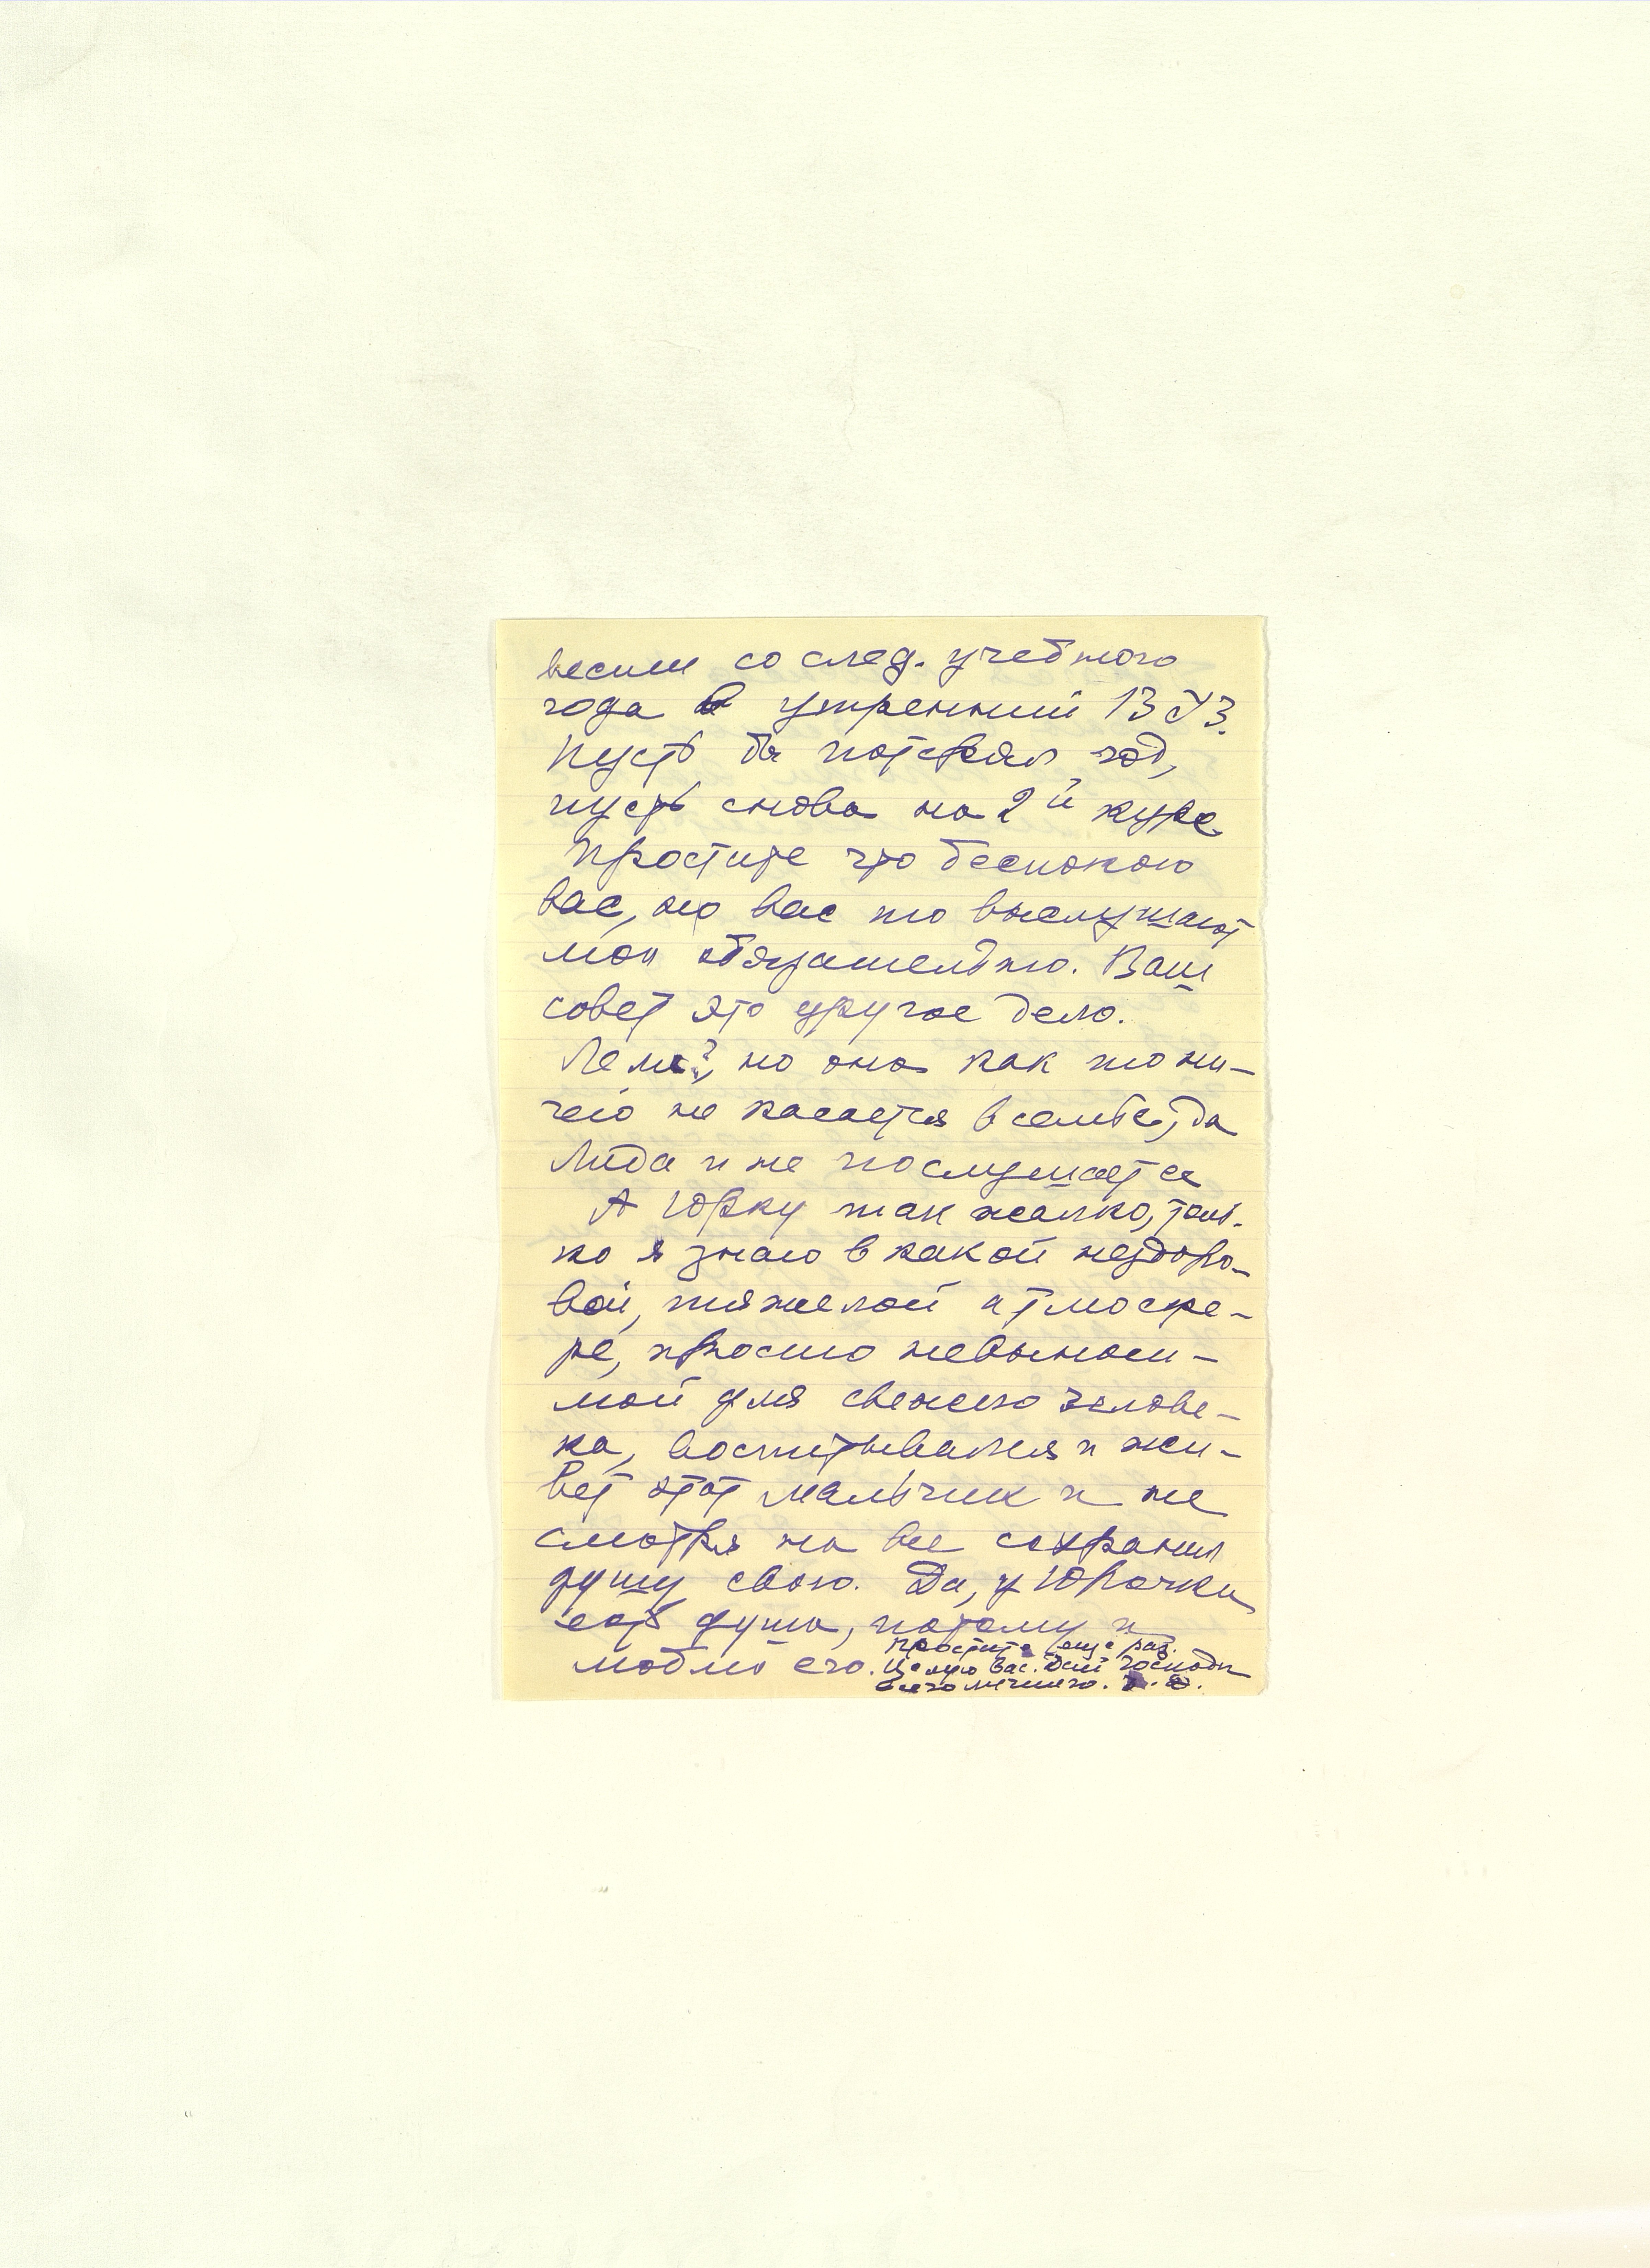 весили со след. учебного
года в утренний ВУЗ.
Пусть бы потерял год,
пусть снова на 2й курс
Простите что беспокою
вас, но вас то выслушают
мои обязательно. Ваш
совет это другое дело.
Леля?, но она как то ни-
чего не касается в семье, да
Лида и не послушается
А Юрку так жалко, толь-
ко я знаю в какой нездоро-
вой, тяжелой атмосфе-
ре, просто невыноси-
мой для свежего челове-
ка, воспитывался и жи-
вет этот мальчик и не
смотря на все сохранил
душу свою. Да, у Юрочки
есть душа, потому и
люблю его. Простите еще раз.
Целую вас. Дай Господи
всего лучшего.